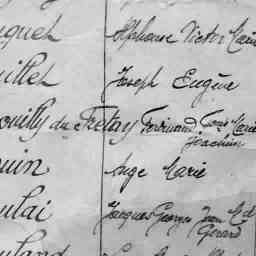 guet Alphonse Victor Marie
uillet Joseph Eugène
ouilly du Fretay Ferdinand Louis Marie
Joachim
uin Ange Marie
ulai Jacques Georges Jean Md
Gérard
uland